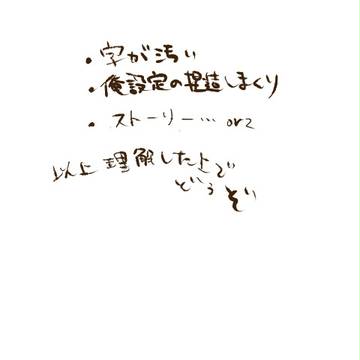 ・字が汚い
・俺設定の捏造しまくり
・ストーリー… orz
以上理解した上で
どうぞ